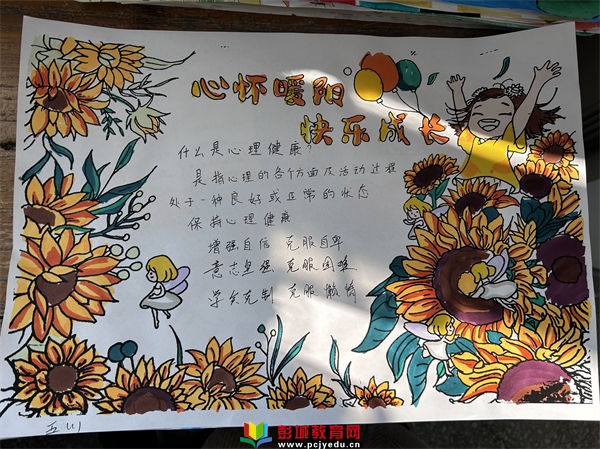 心怀暖阳
快乐成长
什么是心理健康?
是指心理的各个方面及活动过程
处于一种良好或正常的状态
保持心理健康
增强自信 克服自卑
意志坚强 克服困难
学会克制 克服懒惰
五(1)
彭城教育网
www.pcjyedu.cn